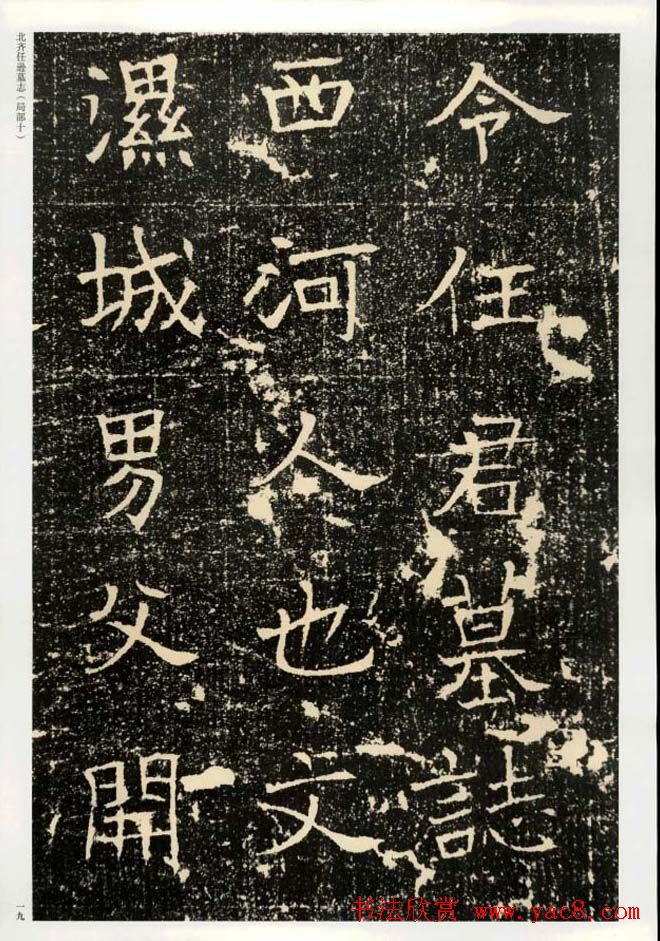 北齐任逊墓志（局部十）
令任君墓誌
西河人也文
濕城男父開
一九
书法欣赏 www.yac8.com